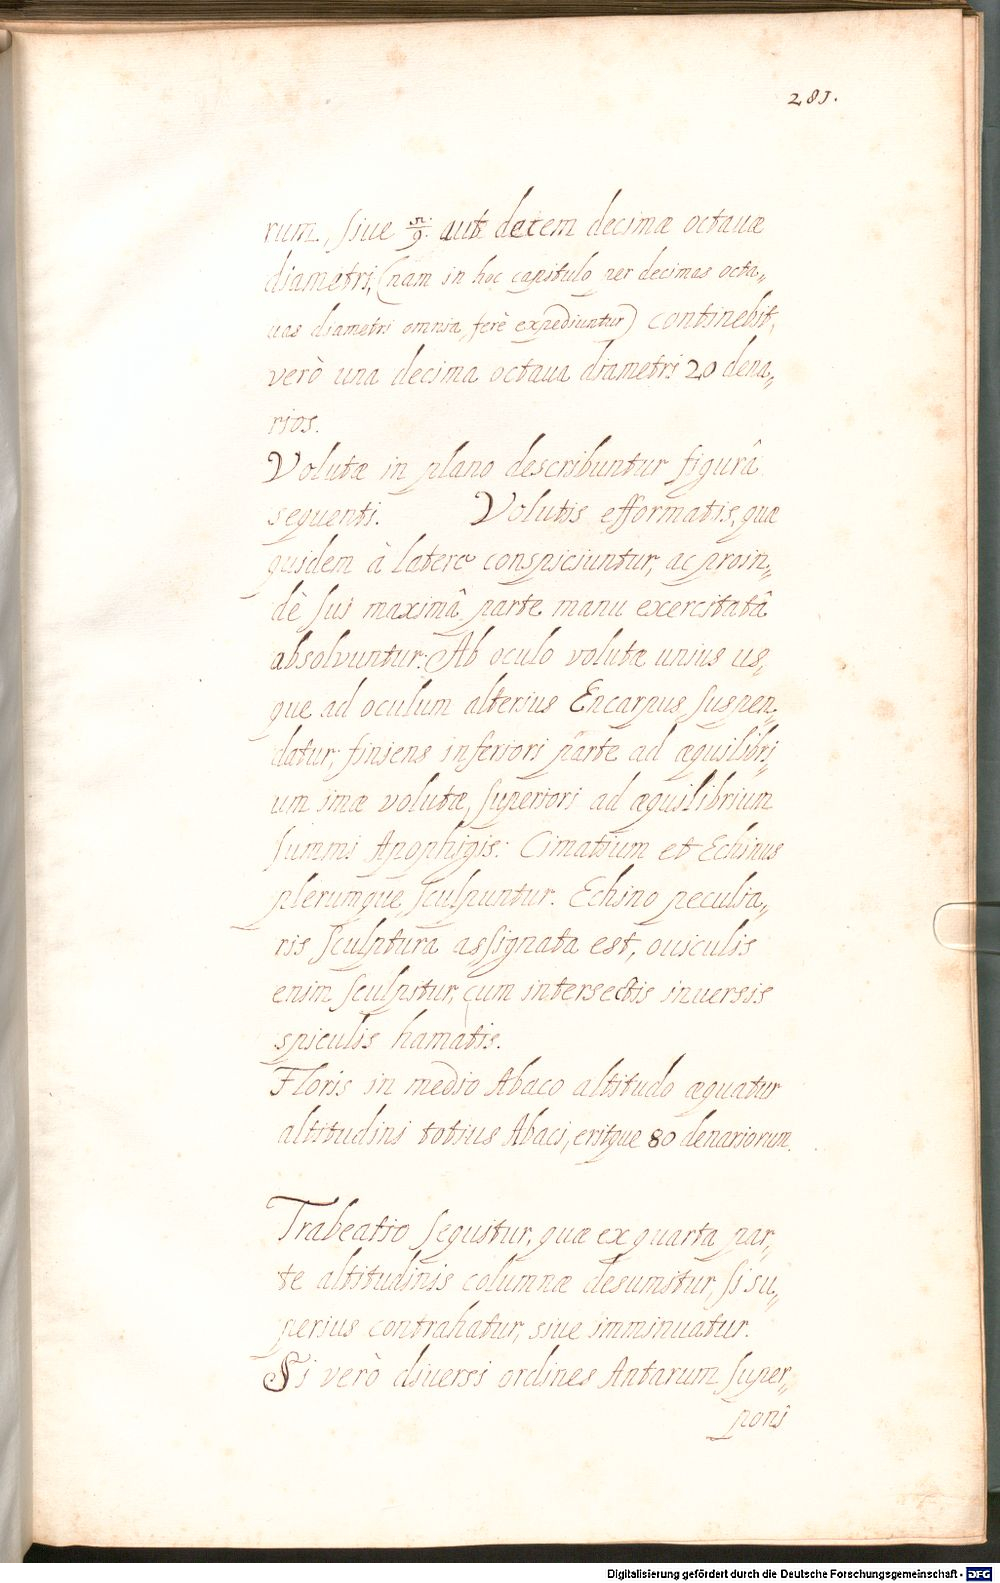 281.
rum, siue 5/9. aut decem decimæ octauæ
diametri, (nam in hoc capitulo per decimas octa„
uas diametri omnia ferè expediuntur) continebit,
verò una decima octaua diametri 20 dena„
rios.
Volutæ in plano describuntur figurâ
sequenti. Volutis efformatis, quæ
quidem à latere conspiciuntur, ac proin„
dè sui maximâ parte manu exercitatâ
absolvuntur: Ab oculo volutæ unius us„
que ad oculum alterius Encarpus suspen„
datur, finiens inferiori parte ad æquilibri„
um imæ volutæ, superiori ad æquilibrium
summi Apophigis: Cimatium et Echinus
plerumque sculpuntur. Echino peculia„
ris sculptura assignata est, ouiculis
enim sculpitur, cum intersectis inuersis
spiculis hamatis.
Floris in medio Abaco altitudo æquatur
altitudini totius Abaci, eritque 80 denariorum.
Trabeatio sequitur, quæ ex quarta par„
te altitudinis columnæ desumitur, si su„
perius contrahatur, siue imminuatur.
Si verò diuersi ordines Antarum super„
poni
Digitalisierung gefördert durch die Deutsche Forschungsgemeinschaft - DFG